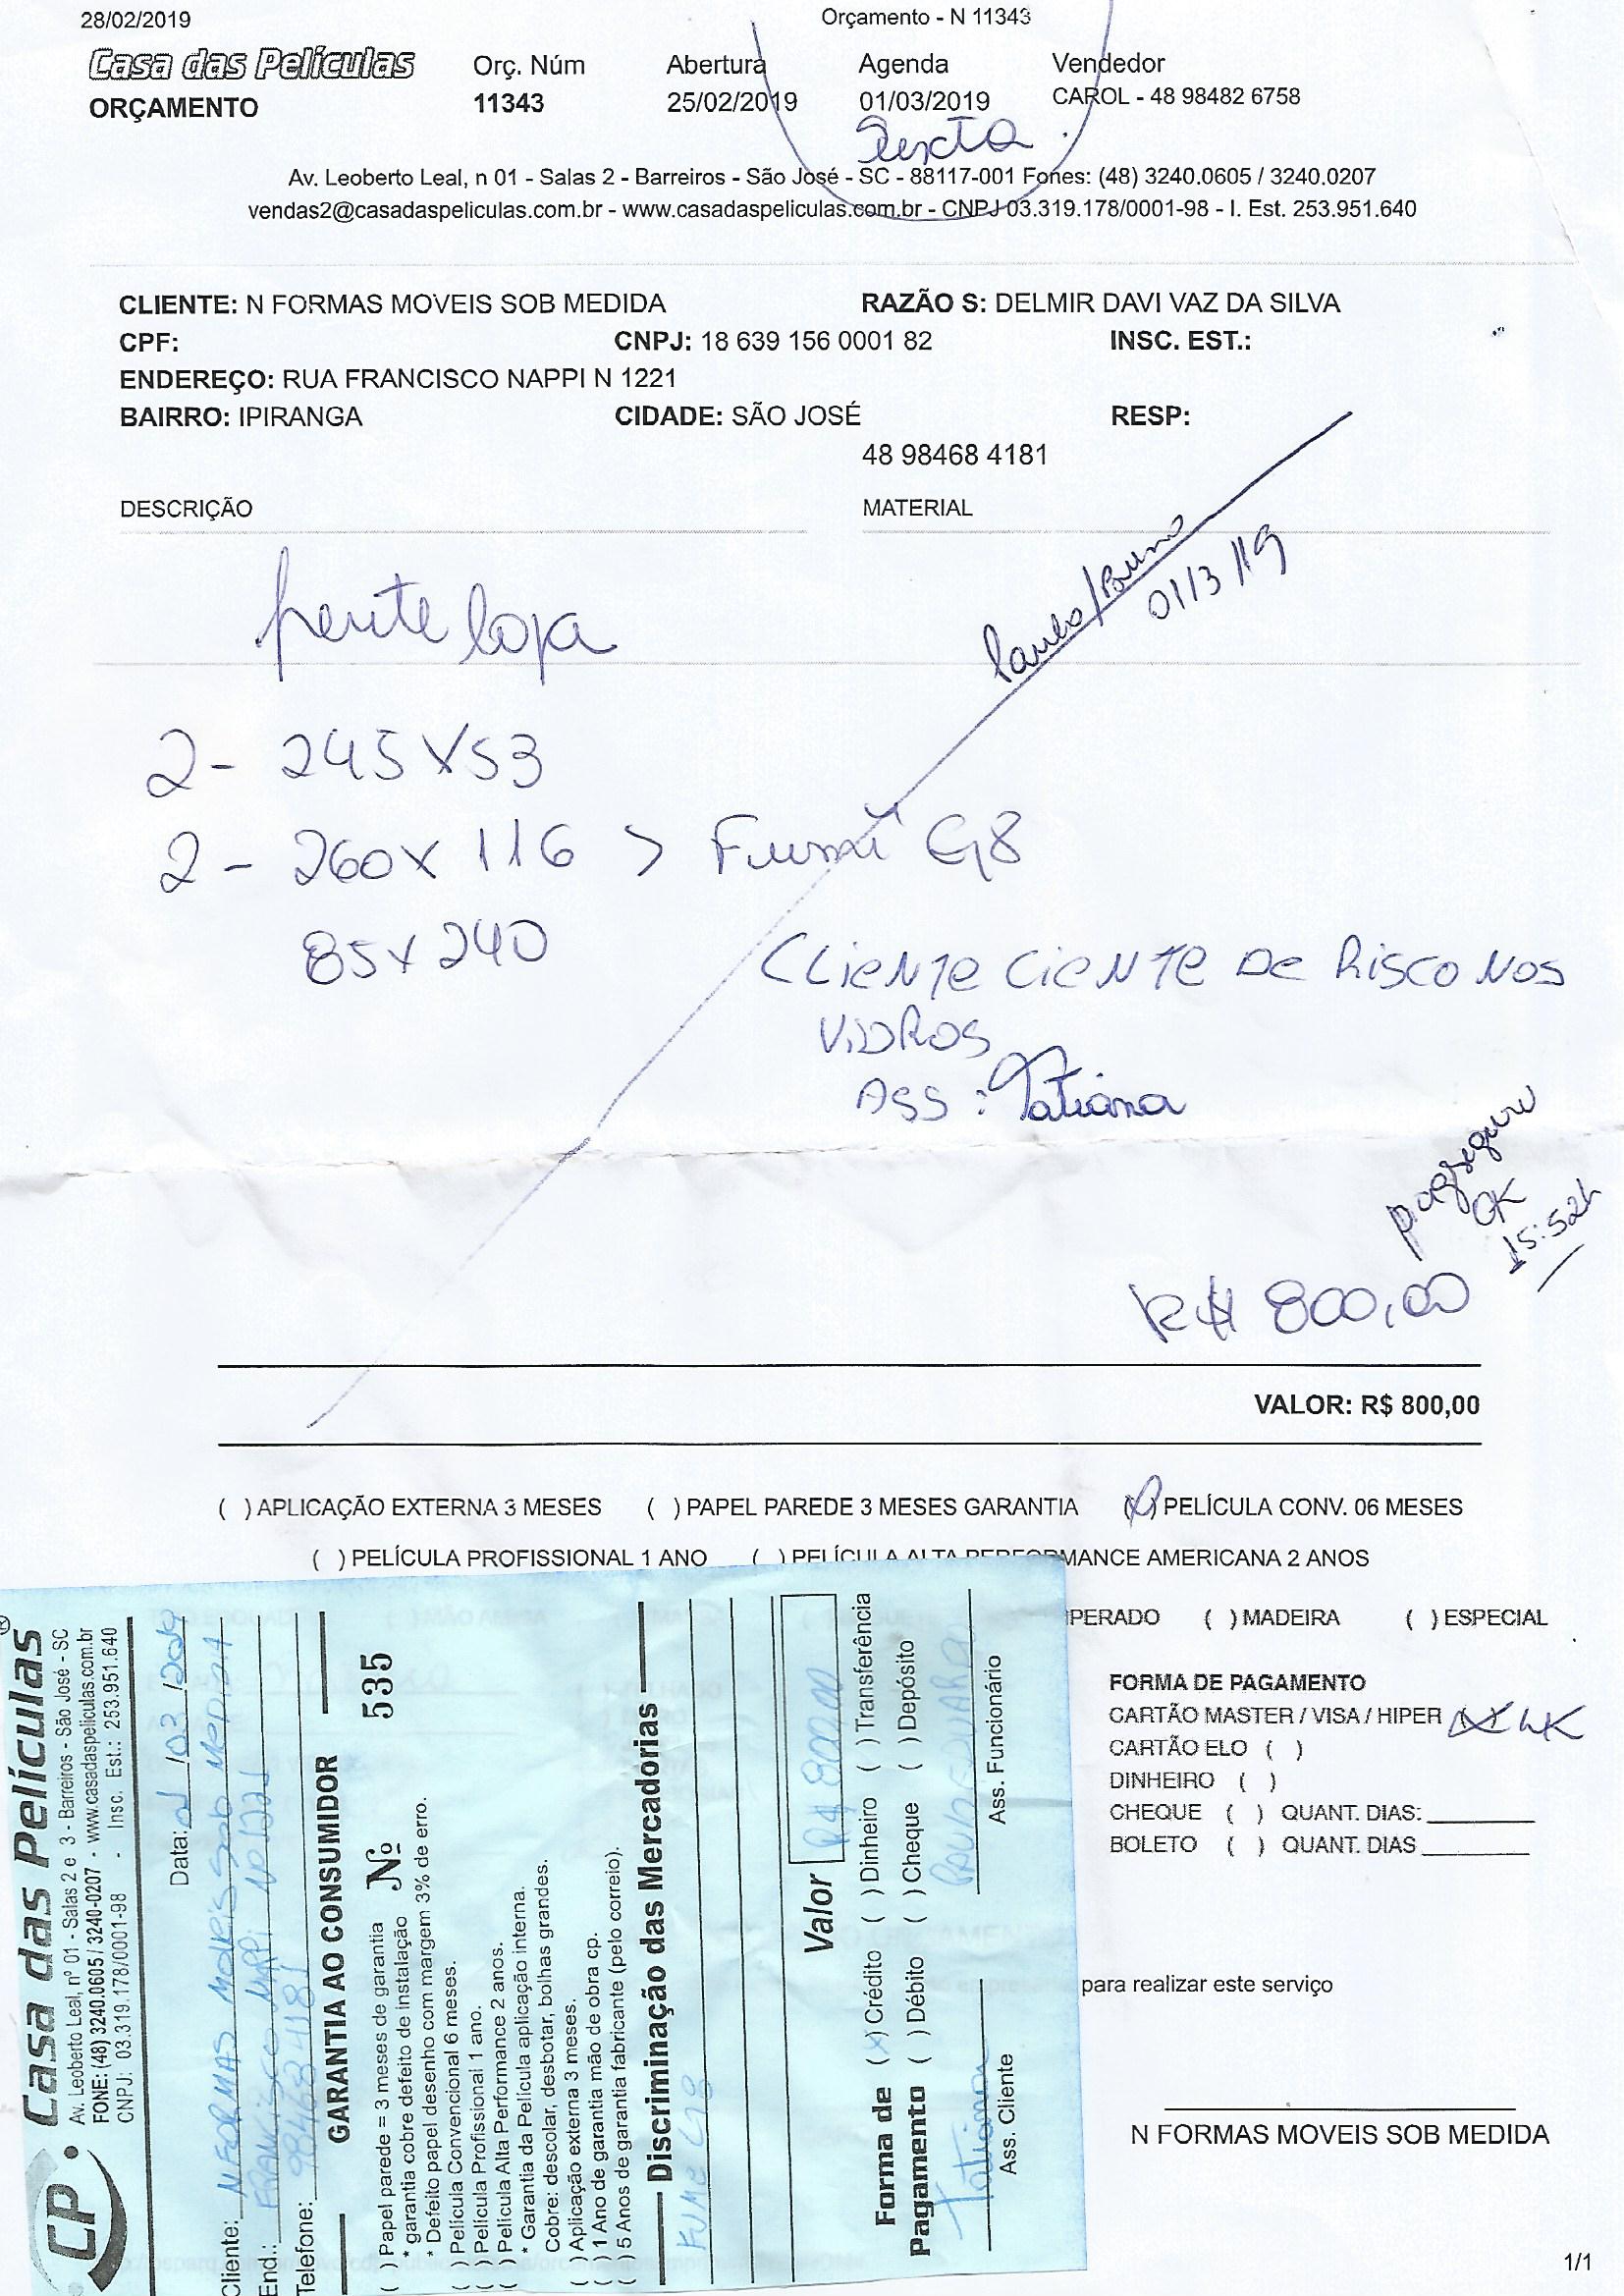 28/02/2019 Orçamento - N 11343
Casa das Películas Orç. Núm Abertura Agenda Vendedor
ORÇAMENTO 11343 25/02/2019 01/03/2019 CAROL - 48 98482 6758
Sexta
Av. Leoberto Leal, n 01 - Salas 2 - Barreiros - São José - SC - 88117-001 Fones: (48) 3240.0605 / 3240.0207
vendas2@casadaspeliculas.com.br - www.casadaspeliculas.com.br - CNPJ 03.319.178/0001-98 - I. Est. 253.951.640
CLIENTE: N FORMAS MOVEIS SOB MEDIDA RAZÃO S: DELMIR DAVI VAZ DA SILVA
CPF: CNPJ: 18 639 156 0001 82 INSC. EST.:
ENDEREÇO: RUA FRANCISCO NAPPI N 1221
BAIRRO: IPIRANGA CIDADE: SÃO JOSÉ RESP:
48 98468 4181
DESCRIÇÃO MATERIAL
frente loja
Paulo/Bruno
01/3/19
2 - 245 x 53
2 - 260 x 116 > Fumê G8
85 x 240
CLIENTE CIENTE DE RISCO NOS
VIDROS
ASS: Tatiana
pagseguro
OK
15:52h
R$ 800,00
VALOR: R$ 800,00
( ) APLICAÇÃO EXTERNA 3 MESES ( ) PAPEL PAREDE 3 MESES GARANTIA (X) PELÍCULA CONV. 06 MESES
( ) PELÍCULA PROFISSIONAL 1 ANO ( ) PELÍCULA ALTA PERFORMANCE AMERICANA 2 ANOS
PERADO ( ) MADEIRA ( ) ESPECIAL
FORMA DE PAGAMENTO
CARTÃO MASTER / VISA / HIPER
CARTÃO ELO ( )
DINHEIRO ( )
CHEQUE ( ) QUANT. DIAS:
BOLETO ( ) QUANT. DIAS
para realizar este serviço
N FORMAS MOVEIS SOB MEDIDA
1/1
CP Casa das Películas®
Av. Leoberto Leal, nº 01 - Salas 2 e 3 - Barreiros - São José - SC
FONE: (48) 3240.0605 / 3240-0207 - www.casadaspeliculas.com.br
CNPJ: 03.319.178/0001-98 - Insc. Est.: 253.951.640
Data: 01/03/2019
Cliente: N FORMAS MOVEIS SOB MEDIDA
End.: FRANCISCO NAPPI Nº 1221
Telefone: 984684181
GARANTIA AO CONSUMIDOR
( ) Papel parede = 3 meses de garantia Nº 535
* garantia cobre defeito de instalação
* Defeito papel desenho com margem 3% de erro.
( ) Película Convencional 6 meses.
( ) Película Profissional 1 ano.
( ) Película Alta Performance 2 anos.
* Garantia da Película aplicação interna.
Cobre: descolar, desbotar, bolhas grandes.
( ) Aplicação externa 3 meses.
( ) 1 Ano de garantia mão de obra cp.
( ) 5 Anos de garantia fabricante (pelo correio).
Discriminação das Mercadorias
FUME G8
Valor R$ 800,00
Forma de Pagamento (x) Crédito ( ) Dinheiro ( ) Transferência
( ) Débito ( ) Cheque ( ) Depósito
Tatiana
Ass. Cliente Ass. Funcionário